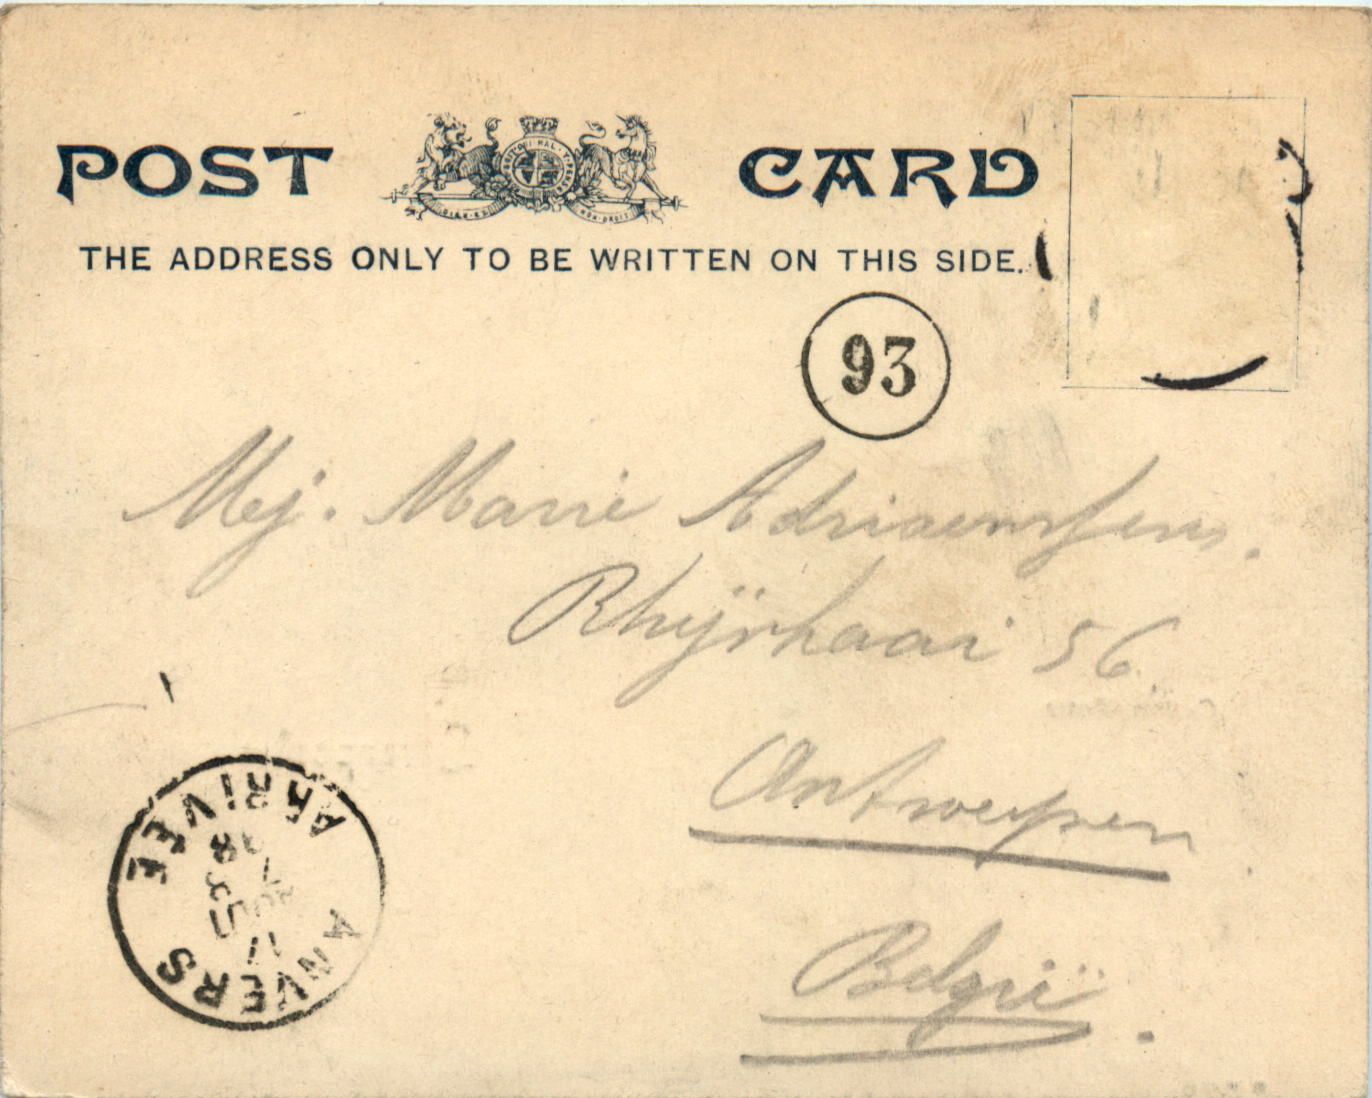 POST CARD
THE ADDRESS ONLY TO BE WRITTEN ON THIS SIDE.
93
Mej. Marie Adriaenssens.
Rhijnkaai 56
Antwerpen
België.
ANVERS
ARRIVÉE